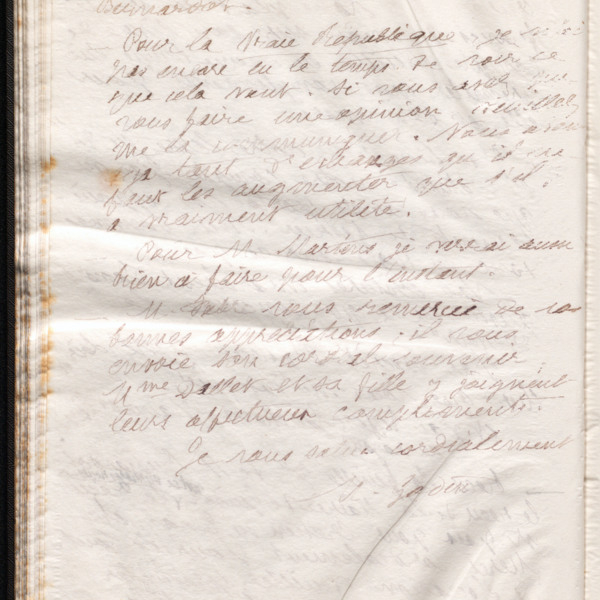 Bernardot.
Pour la Vraie République je n'ai
pas encore eu le temps de voir ce
que cela vaut. Si vous avez pu
vous faire une opinion veuillez
me la communiquer. Nous avons
tant d'échanges qu'il ne
faut les augmenter que s'il y
a vraiment utilité.
Pour M. Martens je ne vois aucun
bien à faire pour l'instant.
M. vous remercie de vos
bonnes appréciations. il vous
envoie son cordial souvenir
Mme Dallet et sa fille y joignent
leurs affectueux compliments.
Je vous salue cordialement
M. Godin